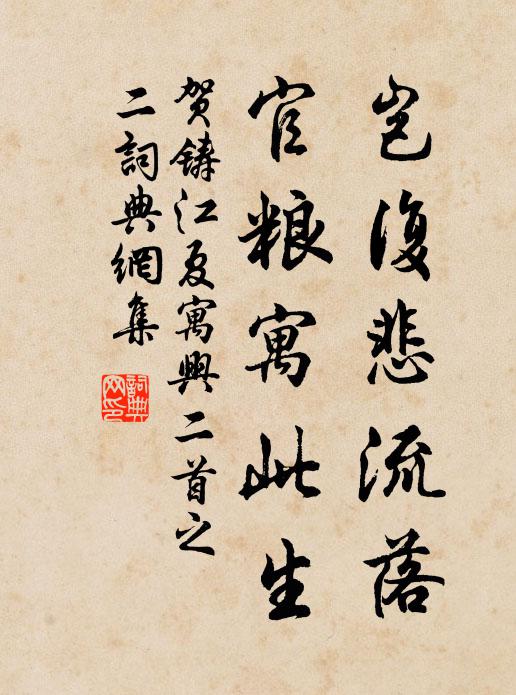 岂復悲流落
官粮寓此生
贺鑄江夏寓興二首之
二詞典網集
詞典
网印